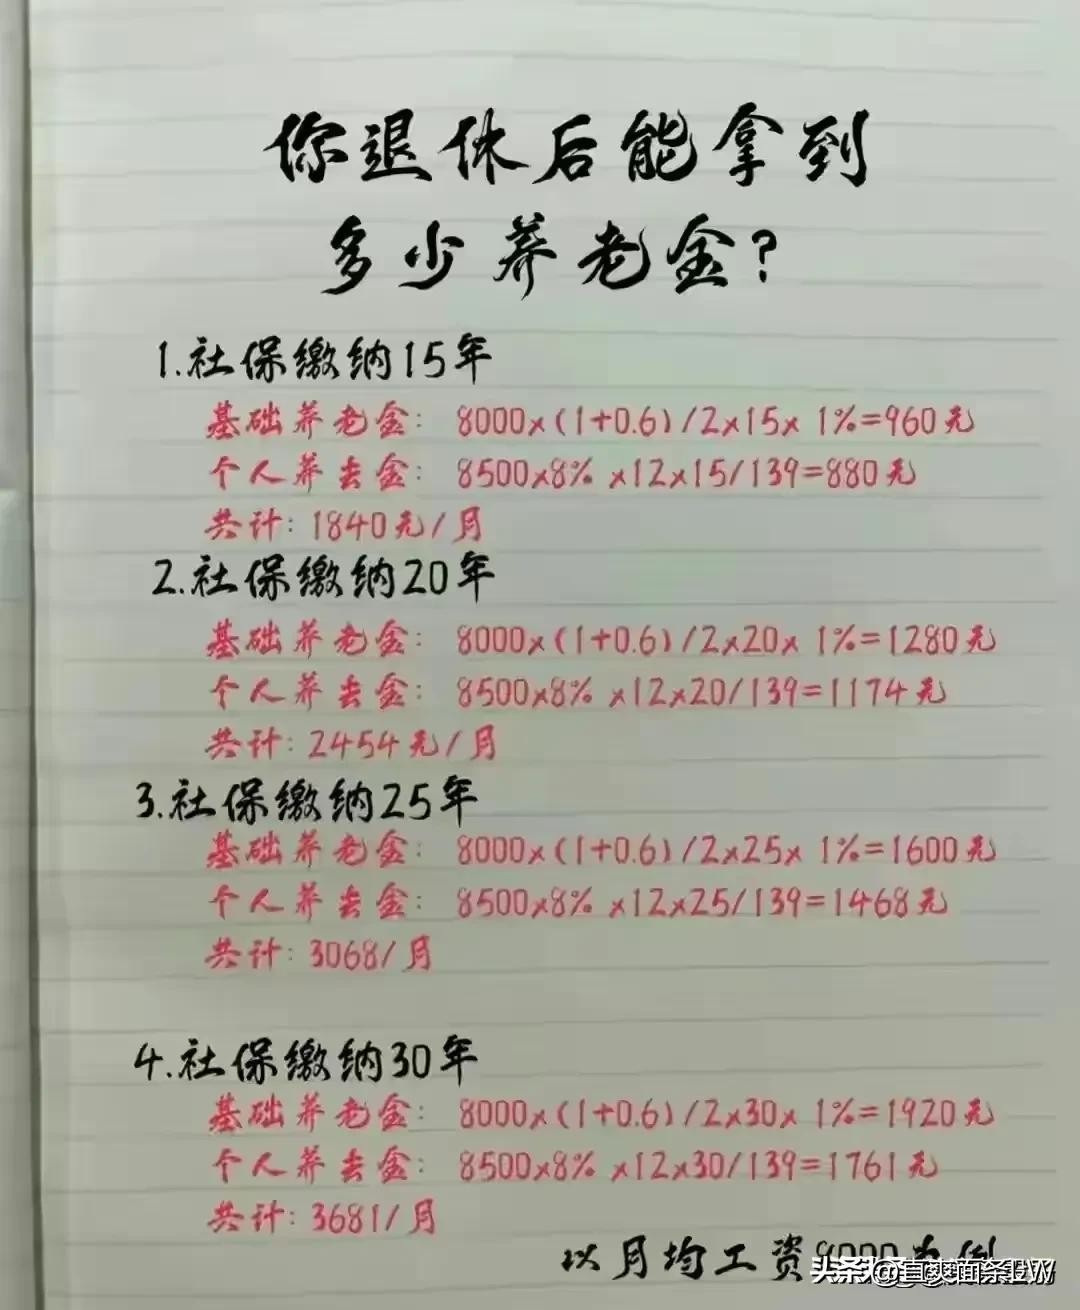 你退休后能拿到
多少养老金?
1.社保缴纳15年
基础养老金: 8000x(1+0.6)/2x15x 1%=960元
个人养去金: 8500x8% x12x15/139=880元
共计: 1840元/月
2.社保缴纳20年
基础养老金: 8000x(1+0.6)/2x20x 1%=1280元
个人养去金: 8500x8% x12x20/139=1174元
共计: 2454元/月
3.社保缴纳25年
基础养老金: 8000x(1+0.6)/2x25x 1%=1600元
个人养去金: 8500x8% x12x25/139=1468元
共计: 3068/月
4.社保缴纳30年
基础养老金: 8000x(1+0.6)/2x30x 1%=1920元
个人养去金: 8500x8% x12x30/139=1761元
共计: 3681/月
以月均工资8000为例
头条@直爽面条IW